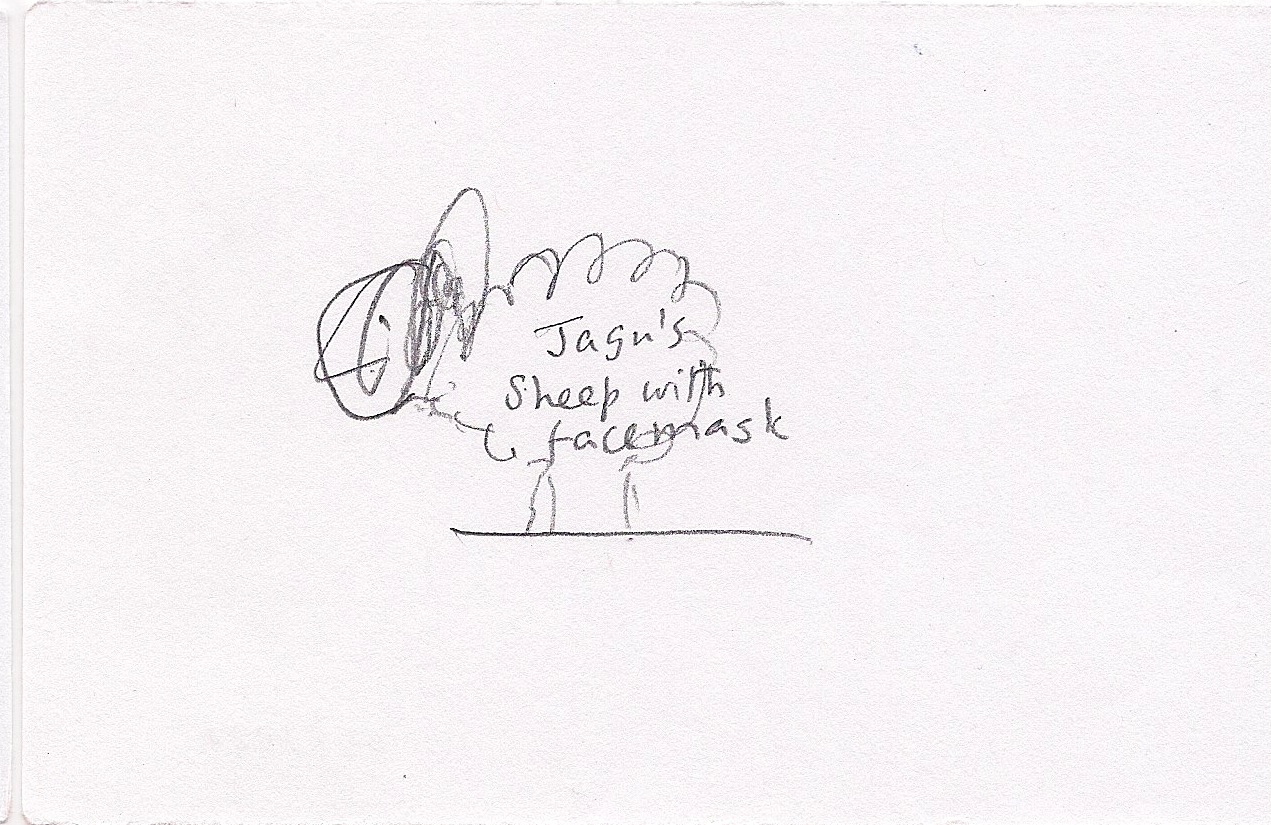 Jagu's
Sheep with
facemask